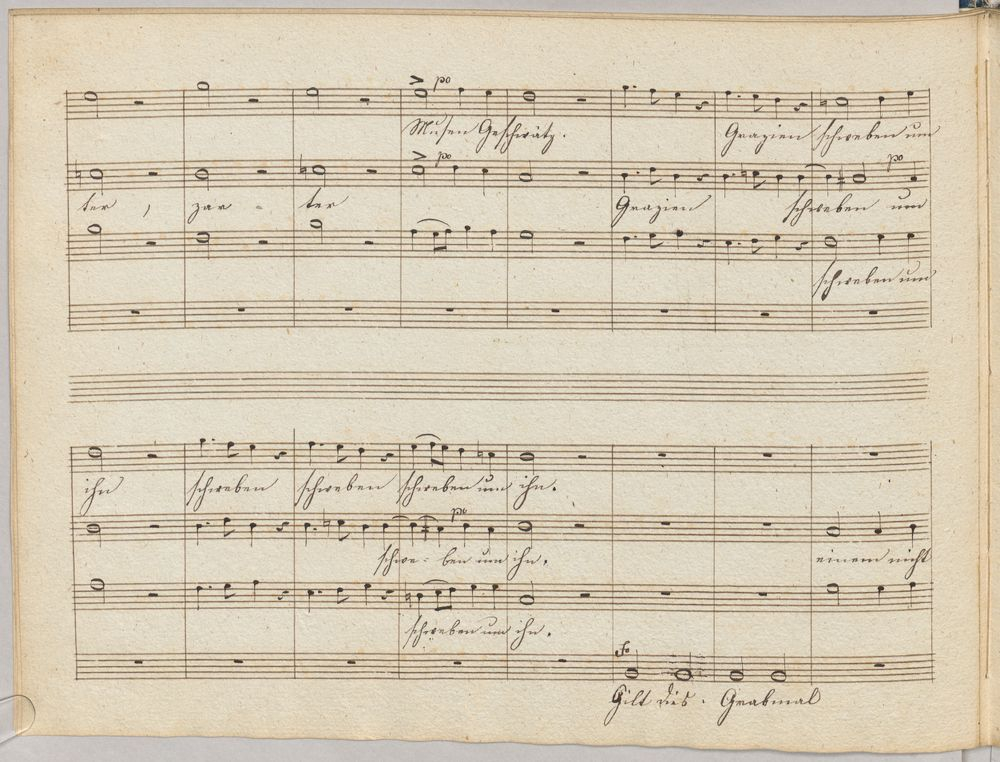 po
Musen Geschwätz. Grazien schweben um
po po
ter, zar - ter Grazien schweben um
schweben um
ihn schweben schweben schweben um ihn.
po
schwe- ben um ihn.
einem nicht
schweben um ihn.
fo
Gilt dies. Grabmal